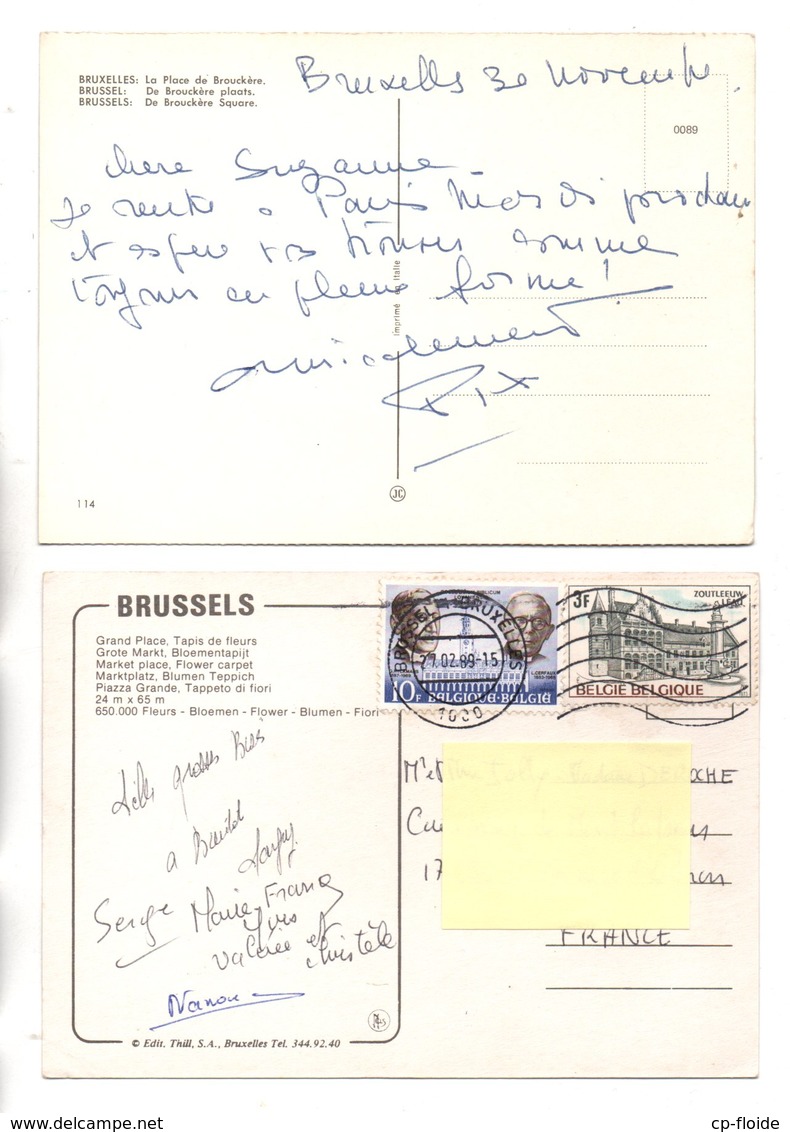 BRUXELLES: La Place de Brouckère.
BRUSSEL: De Brouckère plaats.
BRUSSELS: De Brouckère Square.
Bruxelles 30 novembre
0089
chere Suzanne
Je rentre a Paris Mardi prochain
et espere vs trouver comme
toujours en pleine forme!
amicalement
Imprimé en Italie
114
JC
BRUSSELS
Grand Place, Tapis de fleurs
Grote Markt, Bloementapijt
Market place, Flower carpet
Marktplatz, Blumen Teppich
Piazza Grande, Tappeto di fiori
24 m x 65 m
650.000 Fleurs - Bloemen - Flower - Blumen - Fiori
BRUSSEL BRUXELLES
1000
10F BELGIQUE-BELGIË
L. CERFAUX
3F
ZOUTLEEUW
LÉAU
BELGIË BELGIQUE
grosses Bises
a Bientot
Serge Marie-France
Yves
Valérie et
Christèle
Nanou
Mr et
17
FRANCE
© Edit. Thill, S.A., Bruxelles Tel. 344.92.40
cp-floide